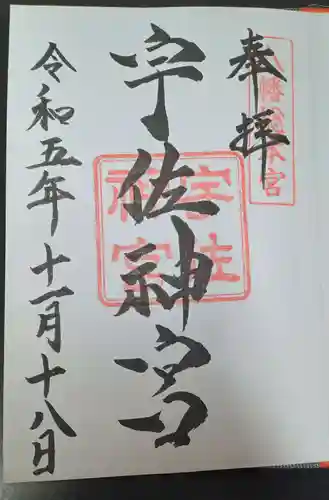 奉拝
八幡総本宮
宇佐神宮
宇佐神宮
令和五年十一月十八日